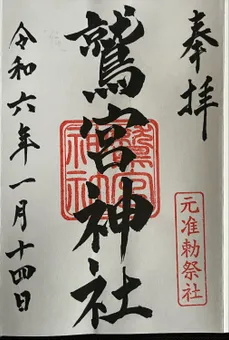 奉拝
鷲宮神社
鷲宮神社
元准勅祭社
令和六年一月十四日